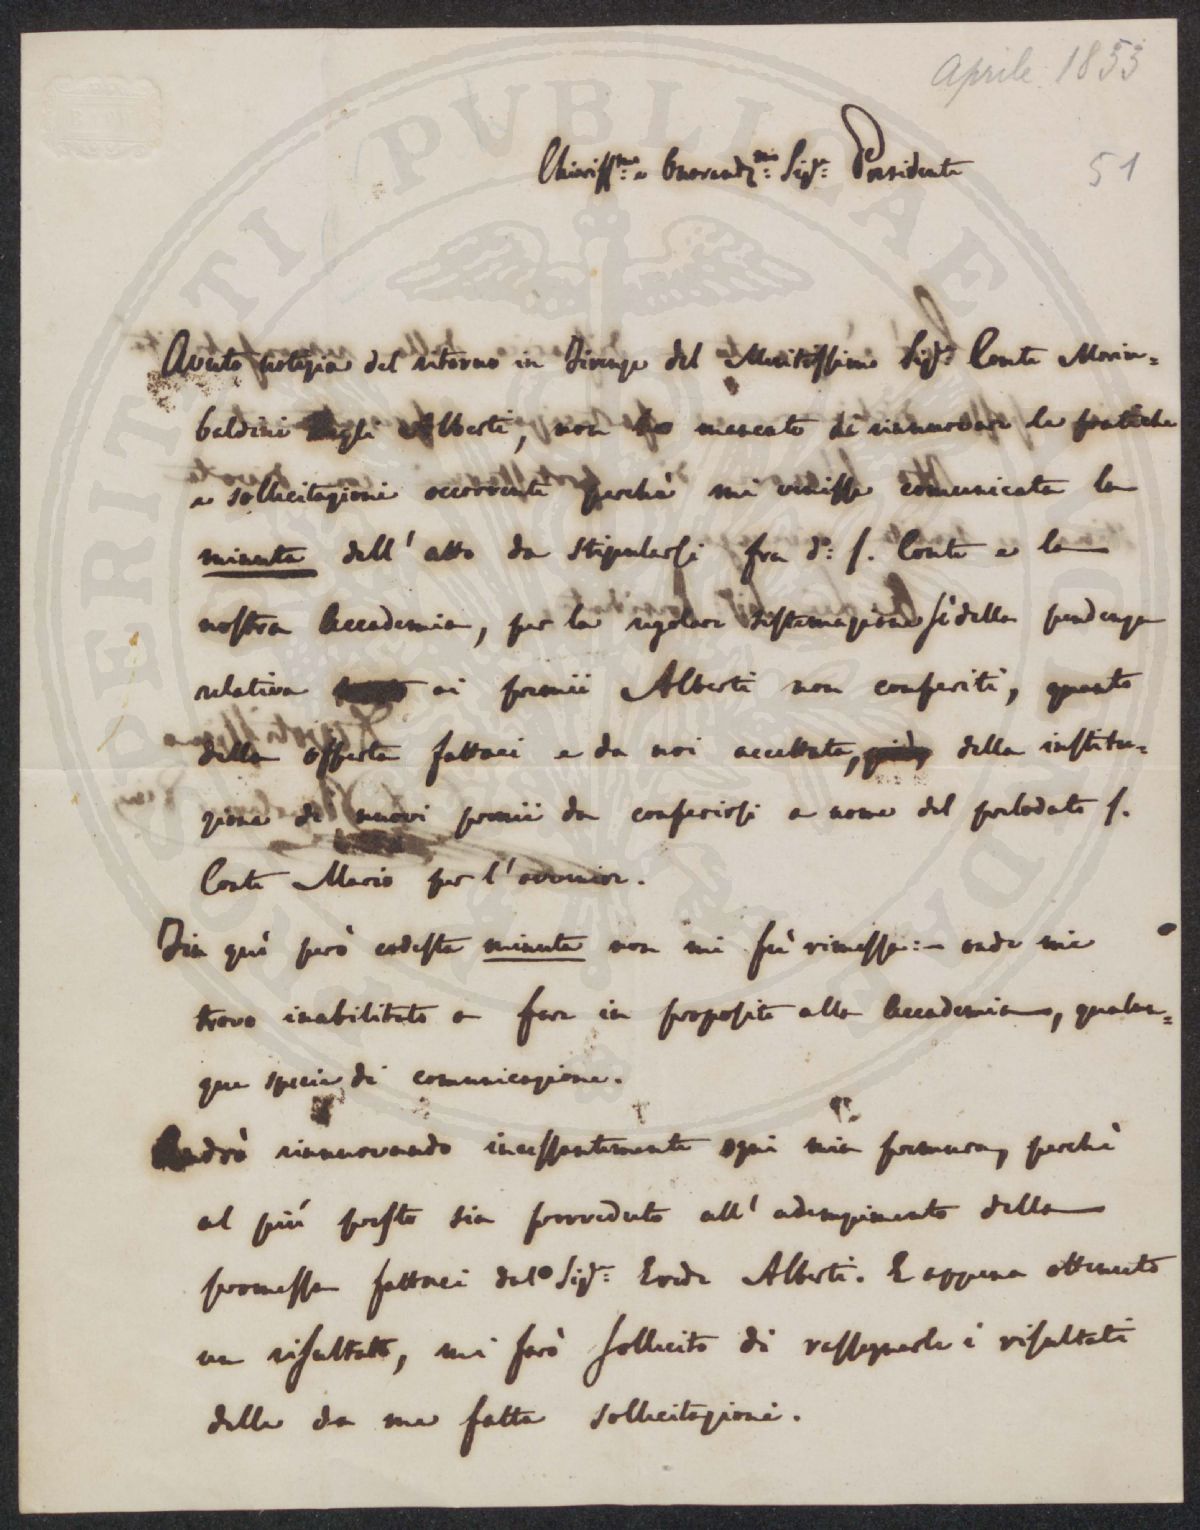 Aprile 1853
51
Chiariss.mo e Onorandis.mo Sigr. Presidente
Avuta notizia del ritorno in Firenze del Meritissimo Sigr. Conte Morim=
baldini degli Alberti, non ho mancato di rinnuovare le pratiche
e sollecitazioni occorrenti perchè mi venisse comunicata la
minuta dell' atto da stipularsi fra d.o S. Conte e la
nostra Accademia, per la regolare sistemazione sì della pendenza
relativa ai premii Alberti non conferiti, quanto
della offerta fattaci e da noi accettata, della institu=
zione di nuovi premii da conferirsi a nome del prelodato S.
Conte Mario per l' avvenire.
Fin quì però codesta minuta non mi fù rimessa: onde mi
trovo inabilitato a fare in proposito alla Accademia, qualun=
que specie di comunicazione.
Andrò rinnuovando incessantemente ogni mia premura, perchè
al più presto sia provveduto all' adempimento della
promessa fattaci dal Sigr. Erede Alberti. E appena ottenuto
un risultato, mi farò sollecito di rassegnarle i risultati
delle da me fatte sollecitazioni.